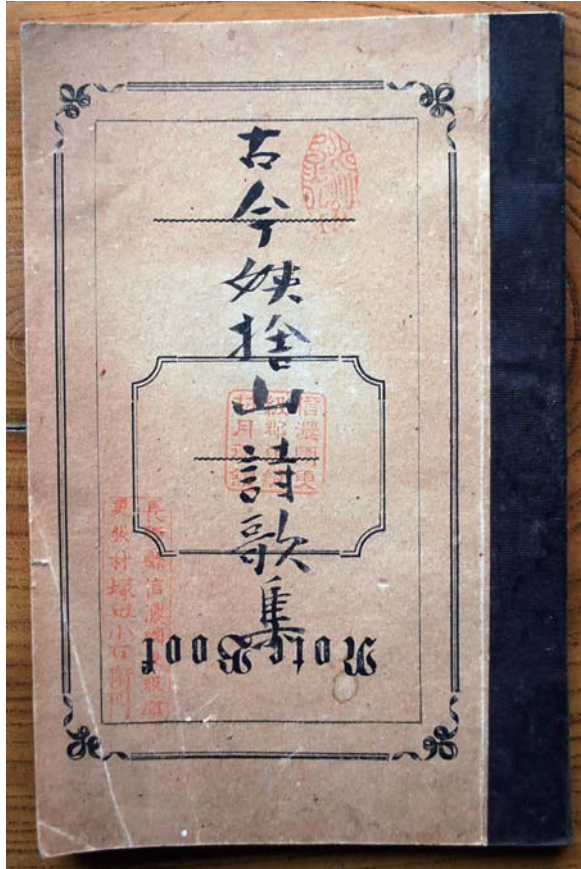 古今姨捨山詩歌集
Note Book
信濃國更
級郡
長野縣信濃國更級郡
更級村塚田小右衛門